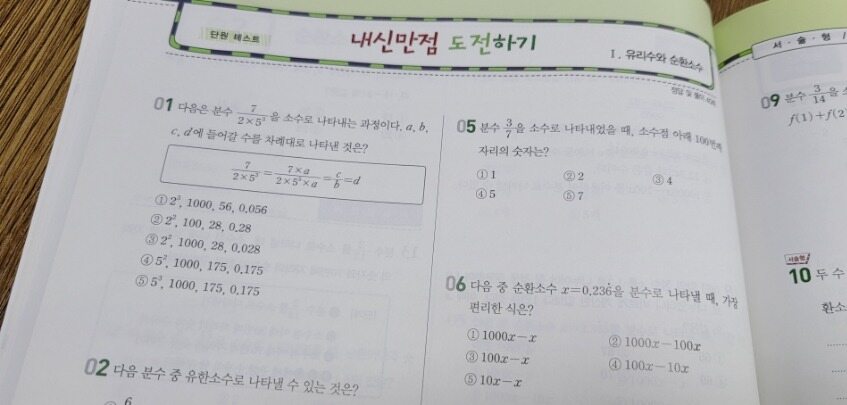 단원 테스트
내신만점 도전하기
Ⅰ. 유리수와 순환소수
01 다음은 분수 7/(2×5³) 을 소수로 나타내는 과정이다. a, b,
c, d에 들어갈 수를 차례대로 나타낸 것은?
7/(2×5³) = (7×a)/(2×5³×a) = c/b = d
① 2³, 1000, 56, 0.056
② 2², 100, 28, 0.28
③ 2², 1000, 28, 0.028
④ 5², 1000, 175, 0.175
⑤ 5³, 1000, 175, 0.175
02 다음 분수 중 유한소수로 나타낼 수 있는 것은?
6
05 분수 3/7 을 소수로 나타내었을 때, 소수점 아래 100번째
자리의 숫자는?
① 1 ② 2 ③ 4
④ 5 ⑤ 7
06 다음 중 순환소수 x=0.236̇을 분수로 나타낼 때, 가장
편리한 식은?
① 1000x-x ② 1000x-100x
③ 100x-x ④ 100x-10x
⑤ 10x-x
서·술·형
09 분수 3/14 을
f(1)+f(2
서술형
10 두 수
환소